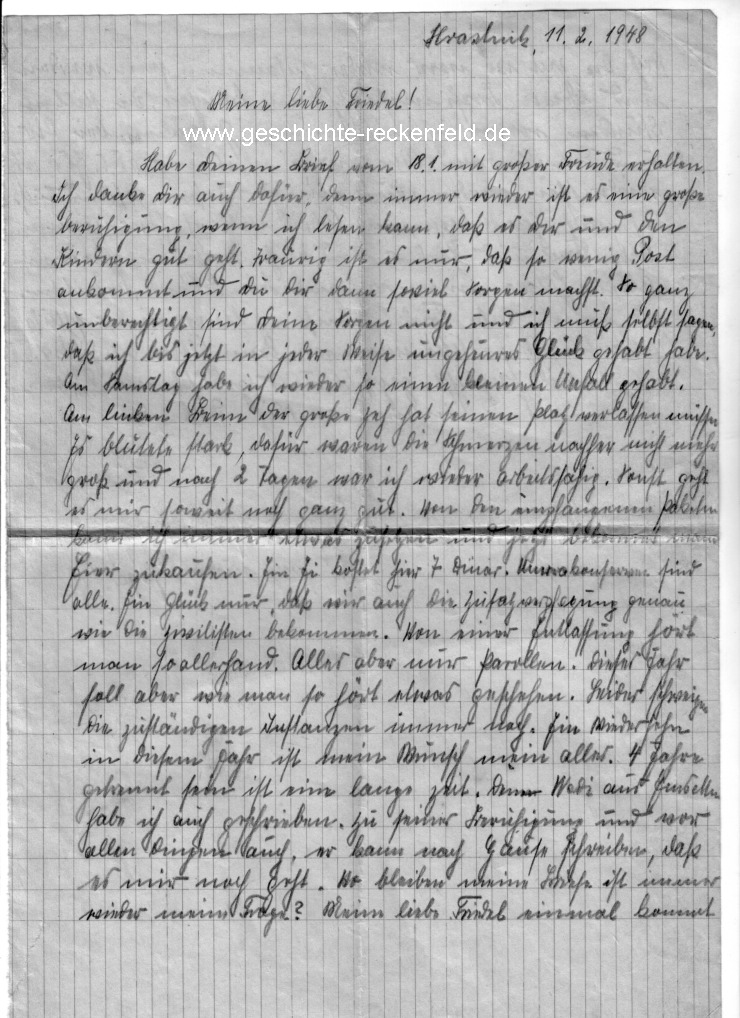 Hrastnik, 11. 2. 1948
Meine liebe Friedel!
www.geschichte-reckenfeld.de
Habe deinen Brief vom 18.1. mit großer Freude erhalten.
Ich danke dir auch dafür, denn immer wieder ist es eine große
beruhigung, wenn ich lesen kann, daß es dir und den
Kindern gut geht. Traurig ist es nur, daß so wenig Post
ankommt und du dir dann soviel Sorgen machst. So ganz
unberechtigt sind deine Sorgen nicht und ich muß selbst sagen,
daß ich bis jetzt in jeder Weise ungeheures Glück gehabt habe.
Am Samstag habe ich wieder so einen kleinen Unfall gehabt.
Am linken Beim der große Zeh hat seinen Platz verlassen müssen
Es blutete stark, dafür waren die Schmerzen nachher nicht mehr
groß und nach 2 Tagen war ich wieder arbeitsfähig. Sonst geht
es mir soweit noch ganz gut. Von den empfangenen Paketen
kann ich immer etwas und jetzt bekommt man
Eier zukaufen. Ein Ei kostet hier 7 Dinar. sind
alle. Ein Glück nur, daß wir auch die Zusatzverpflegung genau
wie die Zivilisten bekommen. Von einer Entlassung hört
man soallerhand. Alles aber nur Parollen. Dieses Jahr
soll aber wie man so hört etwas geschehen. Leider schweigen
die zuständigen Instanzen immer noch. Ein wiedersehn
in diesem Jahr ist mein Wunsch mein alles. 4 Jahre
getrennt sein ist eine lange Zeit. Wadi aus Emsdetten
habe ich auch geschrieben. Zu seiner Beruhigung und vor
allen dingen auch, er kann nach Hause schreiben, daß
es mir noch geht. Wo bleiben meine Briefe ist immer
wieder meine Frage? Meine liebe Friedel einmal kommt